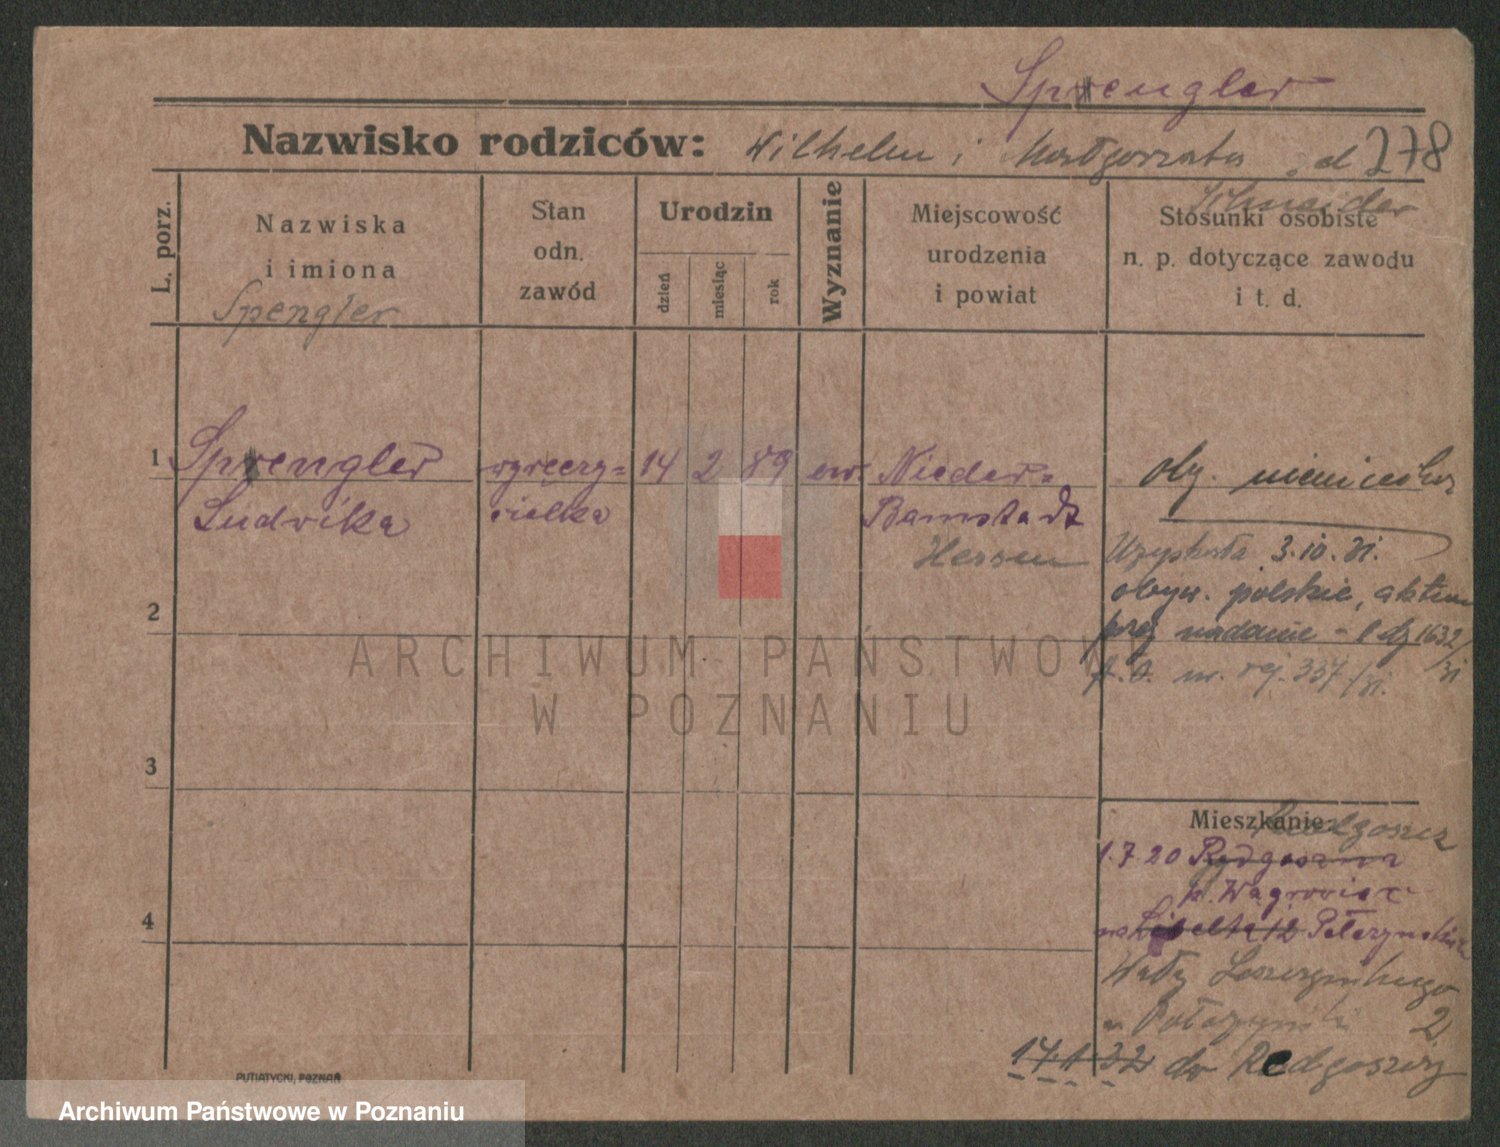 Sprengler
Nazwisko rodziców: Wilhelm i Małgorzata z d. 278
Schneider
L. porz.
Nazwiska
i imiona
Spengler
Stan
odn.
zawód
Urodzin
dzień
miesiąc
rok
Wyznanie
Miejscowość
urodzenia
i powiat
Stosunki osobiste
n. p. dotyczące zawodu
i t. d.
1 Sprengler wyręczy= 14 2 89 ew. Nieder=
Ludwika cielka Ramstadt
Hessen
oby. niemieckie
Uzyskała 3.10.31.
obyw. polskie, aktem
przez nadanie - l dz 1632/31
nr. rej. 337/31.
2
3
4
Mieszkanie
Redgoszcz
1.7.20 Rydgoszcz
p. Wągrowiec
Libelta 12
Wały Leszczyńskiego
2
17.1.32 do Redgoszczy
PUTIATYCKI, POZNAŃ
ARCHIWUM PAŃSTWOWE
W POZNANIU
Archiwum Państwowe w Poznaniu